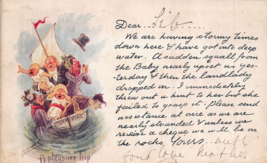 Dear Sib
We are having stormy times
down here & have got into deep
water. A sudden squall from
the Baby nearly upset us yes-
terday & then the landlady
dropped in. I immediately
threw out a hint to her but she
failed to grasp it. Please send
assistance at once as we are
nearly stranded & unless we
receive a cheque we will be on
the rocks. Yours, with
fond love
A pleasure trip